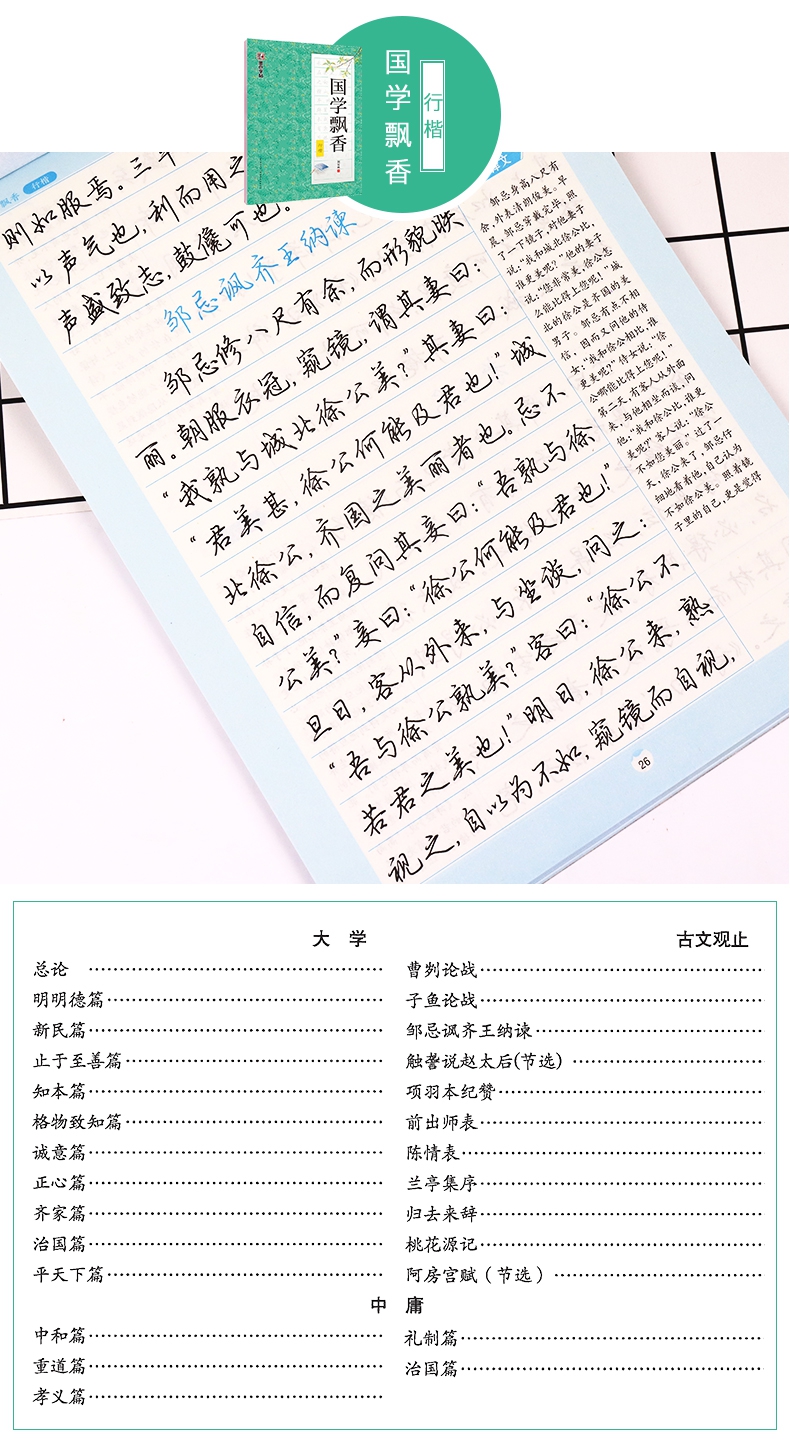 国学飘香
行楷
国学飘香
行楷
飘香 行楷
则如服焉。三军
以声气也,利而用之
声盛致志,鼓儳可也。
邹忌讽齐王纳谏
邹忌修八尺有余,而形貌昳
丽。朝服衣冠,窥镜,谓其妻曰:
“我孰与城北徐公美?”其妻曰:
“君美甚,徐公何能及君也!”城
北徐公,齐国之美丽者也。忌不
自信,而复问其妾曰:“吾孰与徐
公美?”妾曰:“徐公何能及君也!”
旦日,客从外来,与坐谈,问之:
“吾与徐公孰美?”客曰:“徐公不
若君之美也!”明日,徐公来,熟
视之,自以为不如,窥镜而自视,
26
译文
邹忌身高八尺有
余,外表清朗俊美。早
晨,邹忌穿戴完毕,照
了一下镜子,对他妻子
说:“我和城北徐公比,
谁更美呢?”他的妻子
说:“您非常美,徐公怎
么能比得上您呢!”城
北的徐公是齐国的美
男子。邹忌有点不相
信,因而又问他的侍
女:“我和徐公相比,谁
更美呢?”侍女说:“徐
公哪能比得上您呢!”
第二天,有客人从外面
来,与他相坐而谈,问
他:“我和徐公比,谁更
美呢?”客人说:“徐公
不如您美丽。”过了一
天,徐公来了,邹忌仔
细地看着他,自己认为
不如徐公美。照着镜
子里的自己,更是觉得
大 学
总论
明明德篇
新民篇
止于至善篇
知本篇
格物致知篇
诚意篇
正心篇
齐家篇
治国篇
平天下篇
古文观止
曹刿论战
子鱼论战
邹忌讽齐王纳谏
触詟说赵太后(节选)
项羽本纪赞
前出师表
陈情表
兰亭集序
归去来辞
桃花源记
阿房宫赋(节选)
中 庸
中和篇
重道篇
孝义篇
礼制篇
治国篇